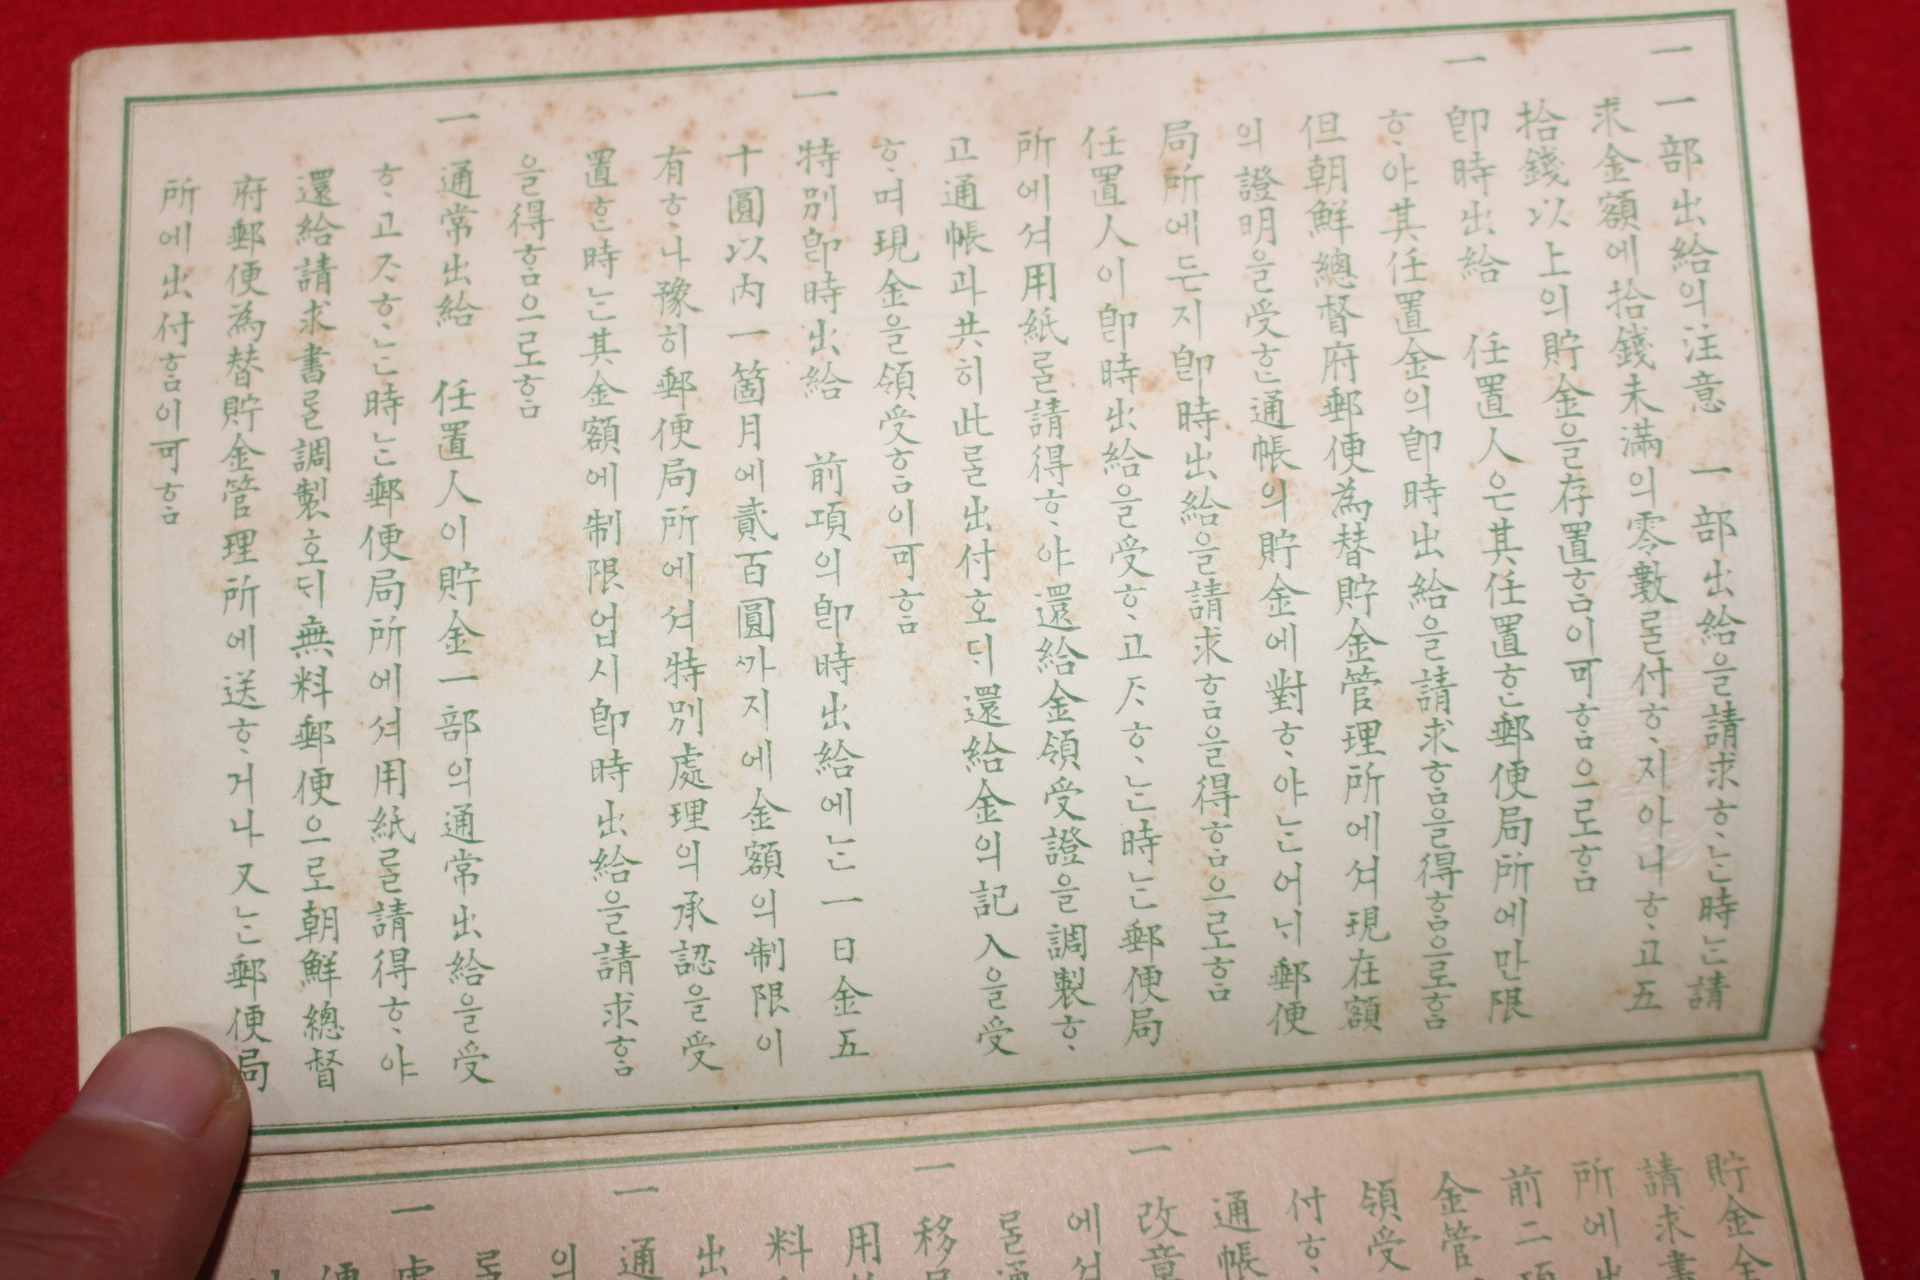 一 一部出給의注意 一部出給을請求ᄒᆞᄂᆞᆫ時ᄂᆞᆫ請
求金額에拾錢未滿의零數ᄅᆞᆯ付ᄒᆞ지아니ᄒᆞ고五
拾錢以上의貯金을存置ᄒᆞᆷ이可ᄒᆞᆷ으로ᄒᆞᆷ
一 卽時出給 任置人은其任置ᄒᆞᆫ郵便局所에만限
ᄒᆞ야其任置金의卽時出給을請求ᄒᆞᆷ을得ᄒᆞᆷ으로ᄒᆞᆷ
但朝鮮總督府郵便為替貯金管理所에셔現在額
의證明을受ᄒᆞᆫ通帳의貯金에對ᄒᆞ야ᄂᆞᆫ어ᄂᆡ郵便
局所에든지卽時出給을請求ᄒᆞᆷ을得ᄒᆞᆷ으로ᄒᆞᆷ
任置人이卽時出給을受ᄒᆞ고ᄌᆞᄒᆞᄂᆞᆫ時ᄂᆞᆫ郵便局
所에셔用紙ᄅᆞᆯ請得ᄒᆞ야還給金領受證을調製ᄒᆞ
고通帳과共히此ᄅᆞᆯ出付호ᄃᆡ還給金의記入을受
ᄒᆞ며現金을領受ᄒᆞᆷ이可ᄒᆞᆷ
一 特別卽時出給 前項의卽時出給에ᄂᆞᆫ一日金五
十圓以內一箇月에貳百圓ᄭᅡ지에金額의制限이
有ᄒᆞ나豫히郵便局所에셔特別處理의承認을受
置ᄒᆞᆫ時ᄂᆞᆫ其金額에制限업시卽時出給을請求ᄒᆞᆷ
을得ᄒᆞᆷ으로ᄒᆞᆷ
一 通常出給 任置人이貯金一部의通常出給을受
ᄒᆞ고ᄌᆞᄒᆞᄂᆞᆫ時ᄂᆞᆫ郵便局所에셔用紙ᄅᆞᆯ請得ᄒᆞ야
還給請求書ᄅᆞᆯ調製호ᄃᆡ無料郵便으로朝鮮總督
府郵便為替貯金管理所에送ᄒᆞ거나又ᄂᆞᆫ郵便局
所에出付ᄒᆞᆷ이可ᄒᆞᆷ
貯金
請求書
所에出
前二項
金管
領受
付ᄒᆞ
通帳
一 改
에셔
ᄅᆞᆯ通
一 移
用
料
出
一 通
의
一